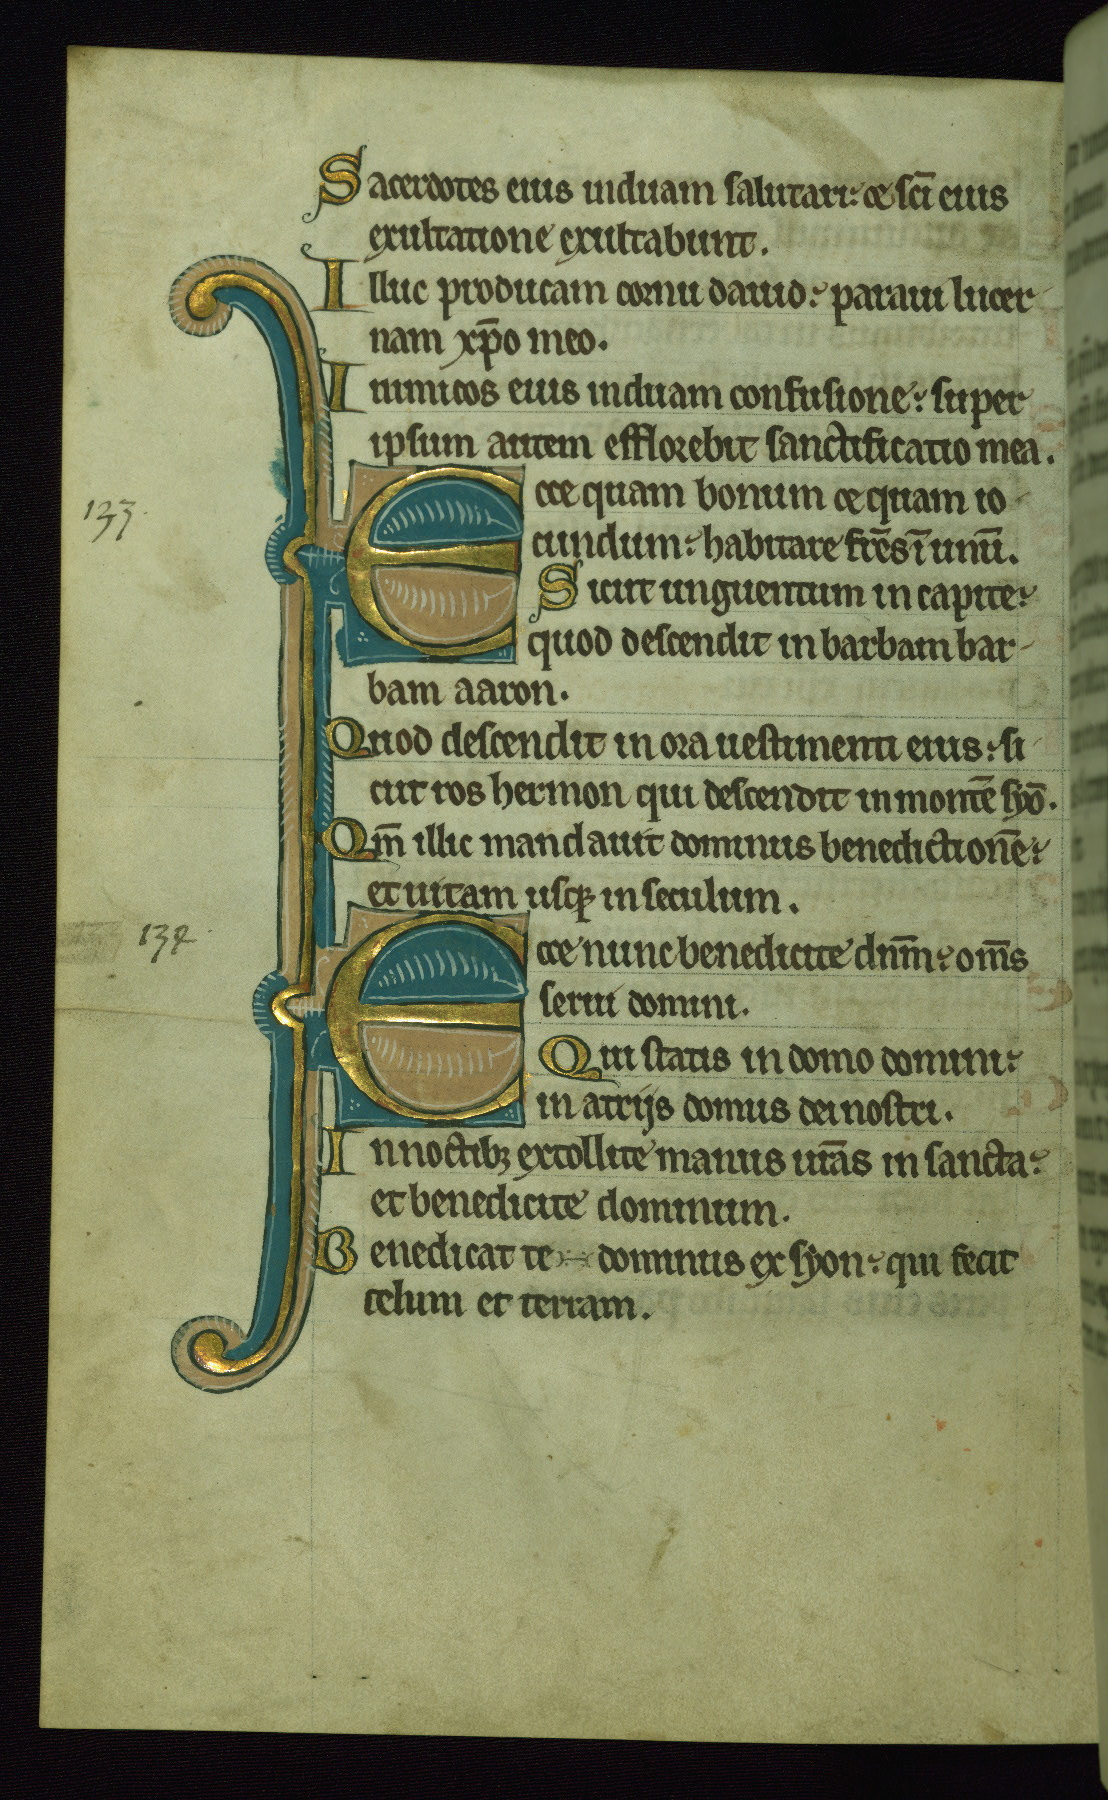 Sacerdotes eius induam salutari: et sc̄i eius
exultatione exultabunt.
Illuc producam cornu dauid: paraui lucer
nam xp̄o meo.
Inimicos eius induam confusione: super
ipsum autem efflorebit sanctificatio mea.
133.
Ecce quam bonum et quam io
cundum: habitare fr̄es ī unū.
Sicut unguentum in capite:
quod descendit in barbam bar
bam aaron.
Quod descendit in ora uestimenti eius: si
cut ros hermon qui descendit in montē syō.
Qm̄ illic mandauit dominus benedictionē:
et uitam usq̢ in seculum.
134.
Ecce nunc benedicite dn̄m: om̄s
serui domini.
Qui statis in domo domini:
in atrijs domus dei nostri.
In noctibꝫ extollite manus ur̄as in sancta:
et benedicite dominum.
Benedicat te dominus ex syon: qui fecit
celum et terram.